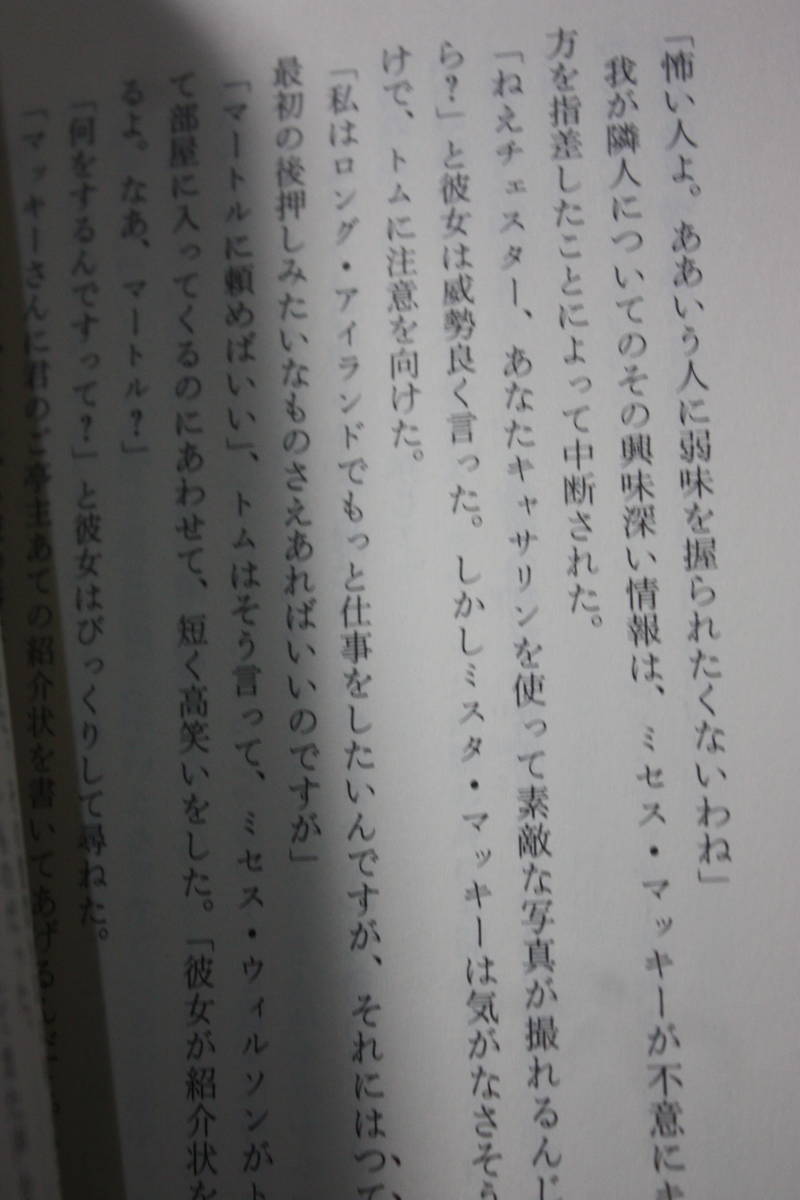 「怖い人よ。ああいう人に弱味を握られたくないわね」
我が隣人についてのその興味深い情報は、ミセス・マッキーが不意にキ
方を指差したことによって中断された。
「ねえチェスター、あなたキャサリンを使って素敵な写真が撮れるんじ
ら?」と彼女は威勢良く言った。しかしミスタ・マッキーは気がなさそう
けで、トムに注意を向けた。
「私はロング・アイランドでもっと仕事をしたいんですが、それにはつて
最初の後押しみたいなものさえあればいいのですが」
「マートルに頼めばいい」、トムはそう言って、ミセス・ウィルソンがト
て部屋に入ってくるのにあわせて、短く高笑いをした。「彼女が紹介状を
るよ。なあ、マートル?」
「何をするんですって?」と彼女はびっくりして尋ねた。
「マッキーさんに君のご亭主あての紹介状を書いてあげるんだ